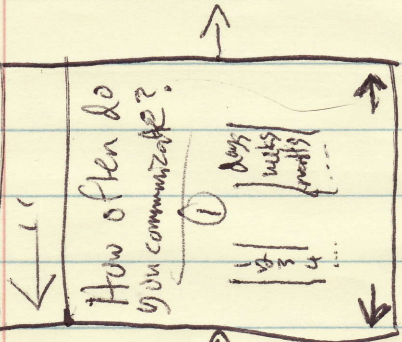 How often do
you communicate?
①
1
2
3
4
...
days
weeks
months
....